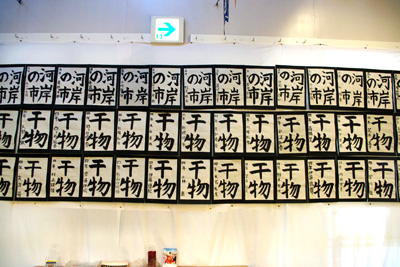 河岸の市 河岸の市 河岸の市 河岸の市 河岸の市 河岸の市 河岸の市 河岸の市 河岸の市 河岸の市 河岸の市 河岸の市 河岸の市
干物 干物 干物 干物 干物 干物 干物 干物 干物 干物 干物 干物 干物
干物 干物 干物 干物 干物 干物 干物 干物 干物 干物 干物 干物 干物